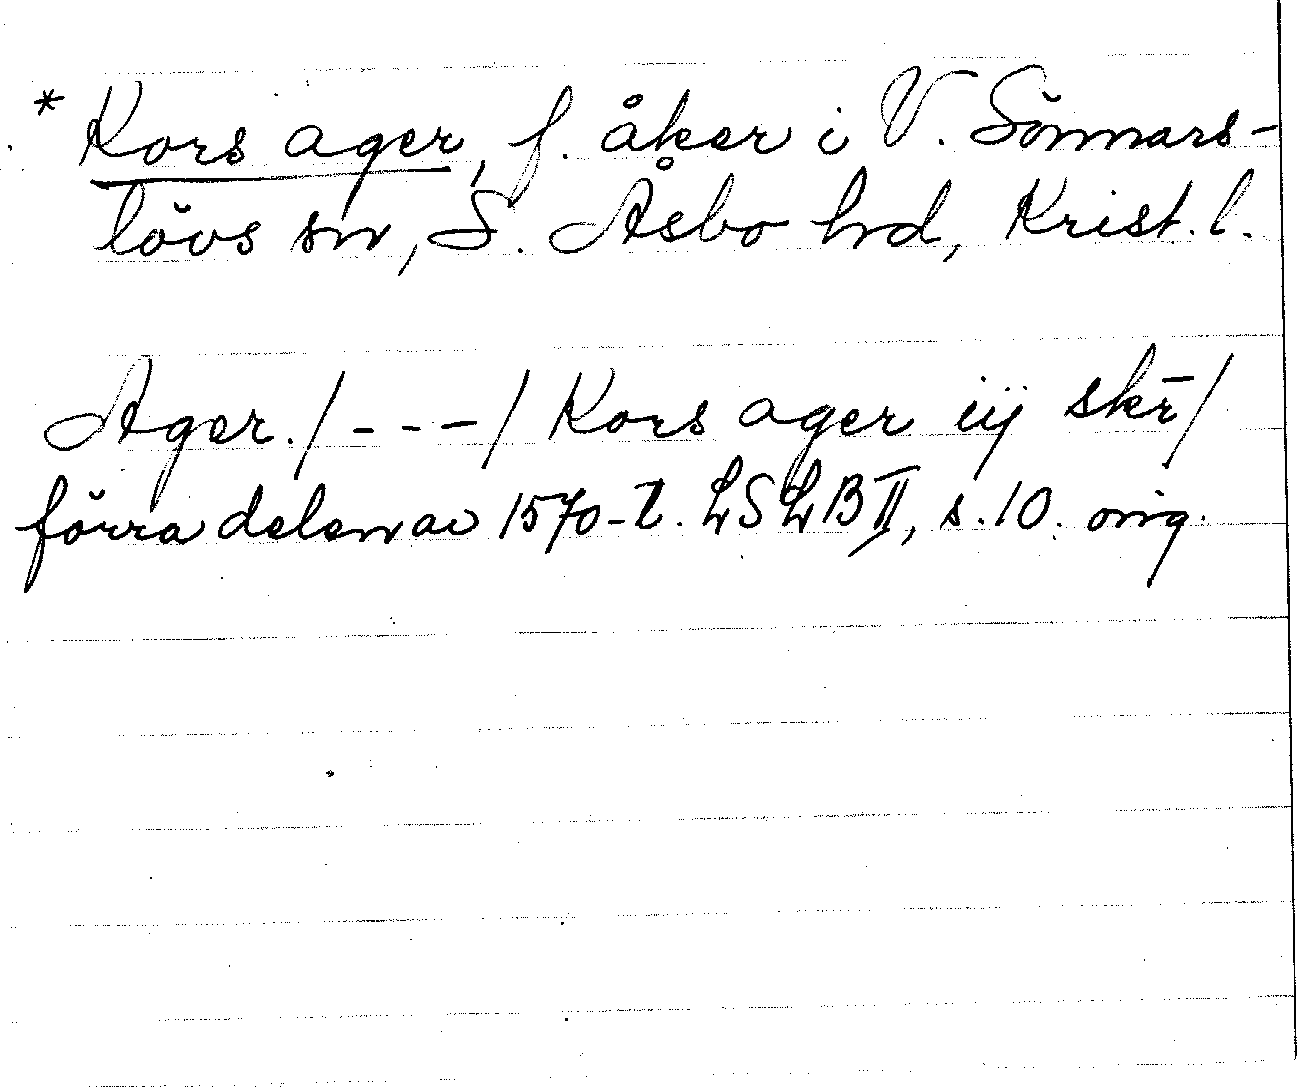 * Kors ager, f. åker i V. Sönnars-
lövs sn, S. Åsbo hd, Krist. l.
Ager. / - - - / Kors ager iij skr̄ /
förra delen av 1570-t. LSLB II, s. 10. orig.